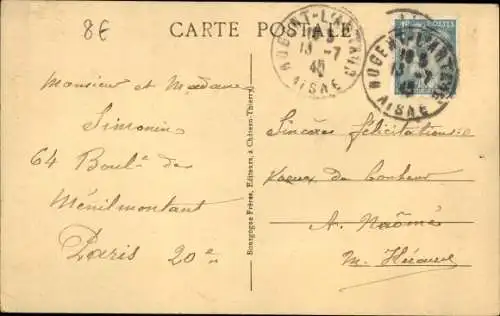 8€
CARTE POSTALE
NOGENT-L'ARTAUD
13 -7
45
AISNE
NOGENT-L'ARTAUD
13 -7
45
AISNE
Monsieur et Madame
Simonin
64 Boulᵈ de
Ménilmontant
Paris 20e
Bourgogne Frères, Editeurs, à Château-Thierry
Sincères félicitations et
vœux de bonheur
A. Naômé
M.